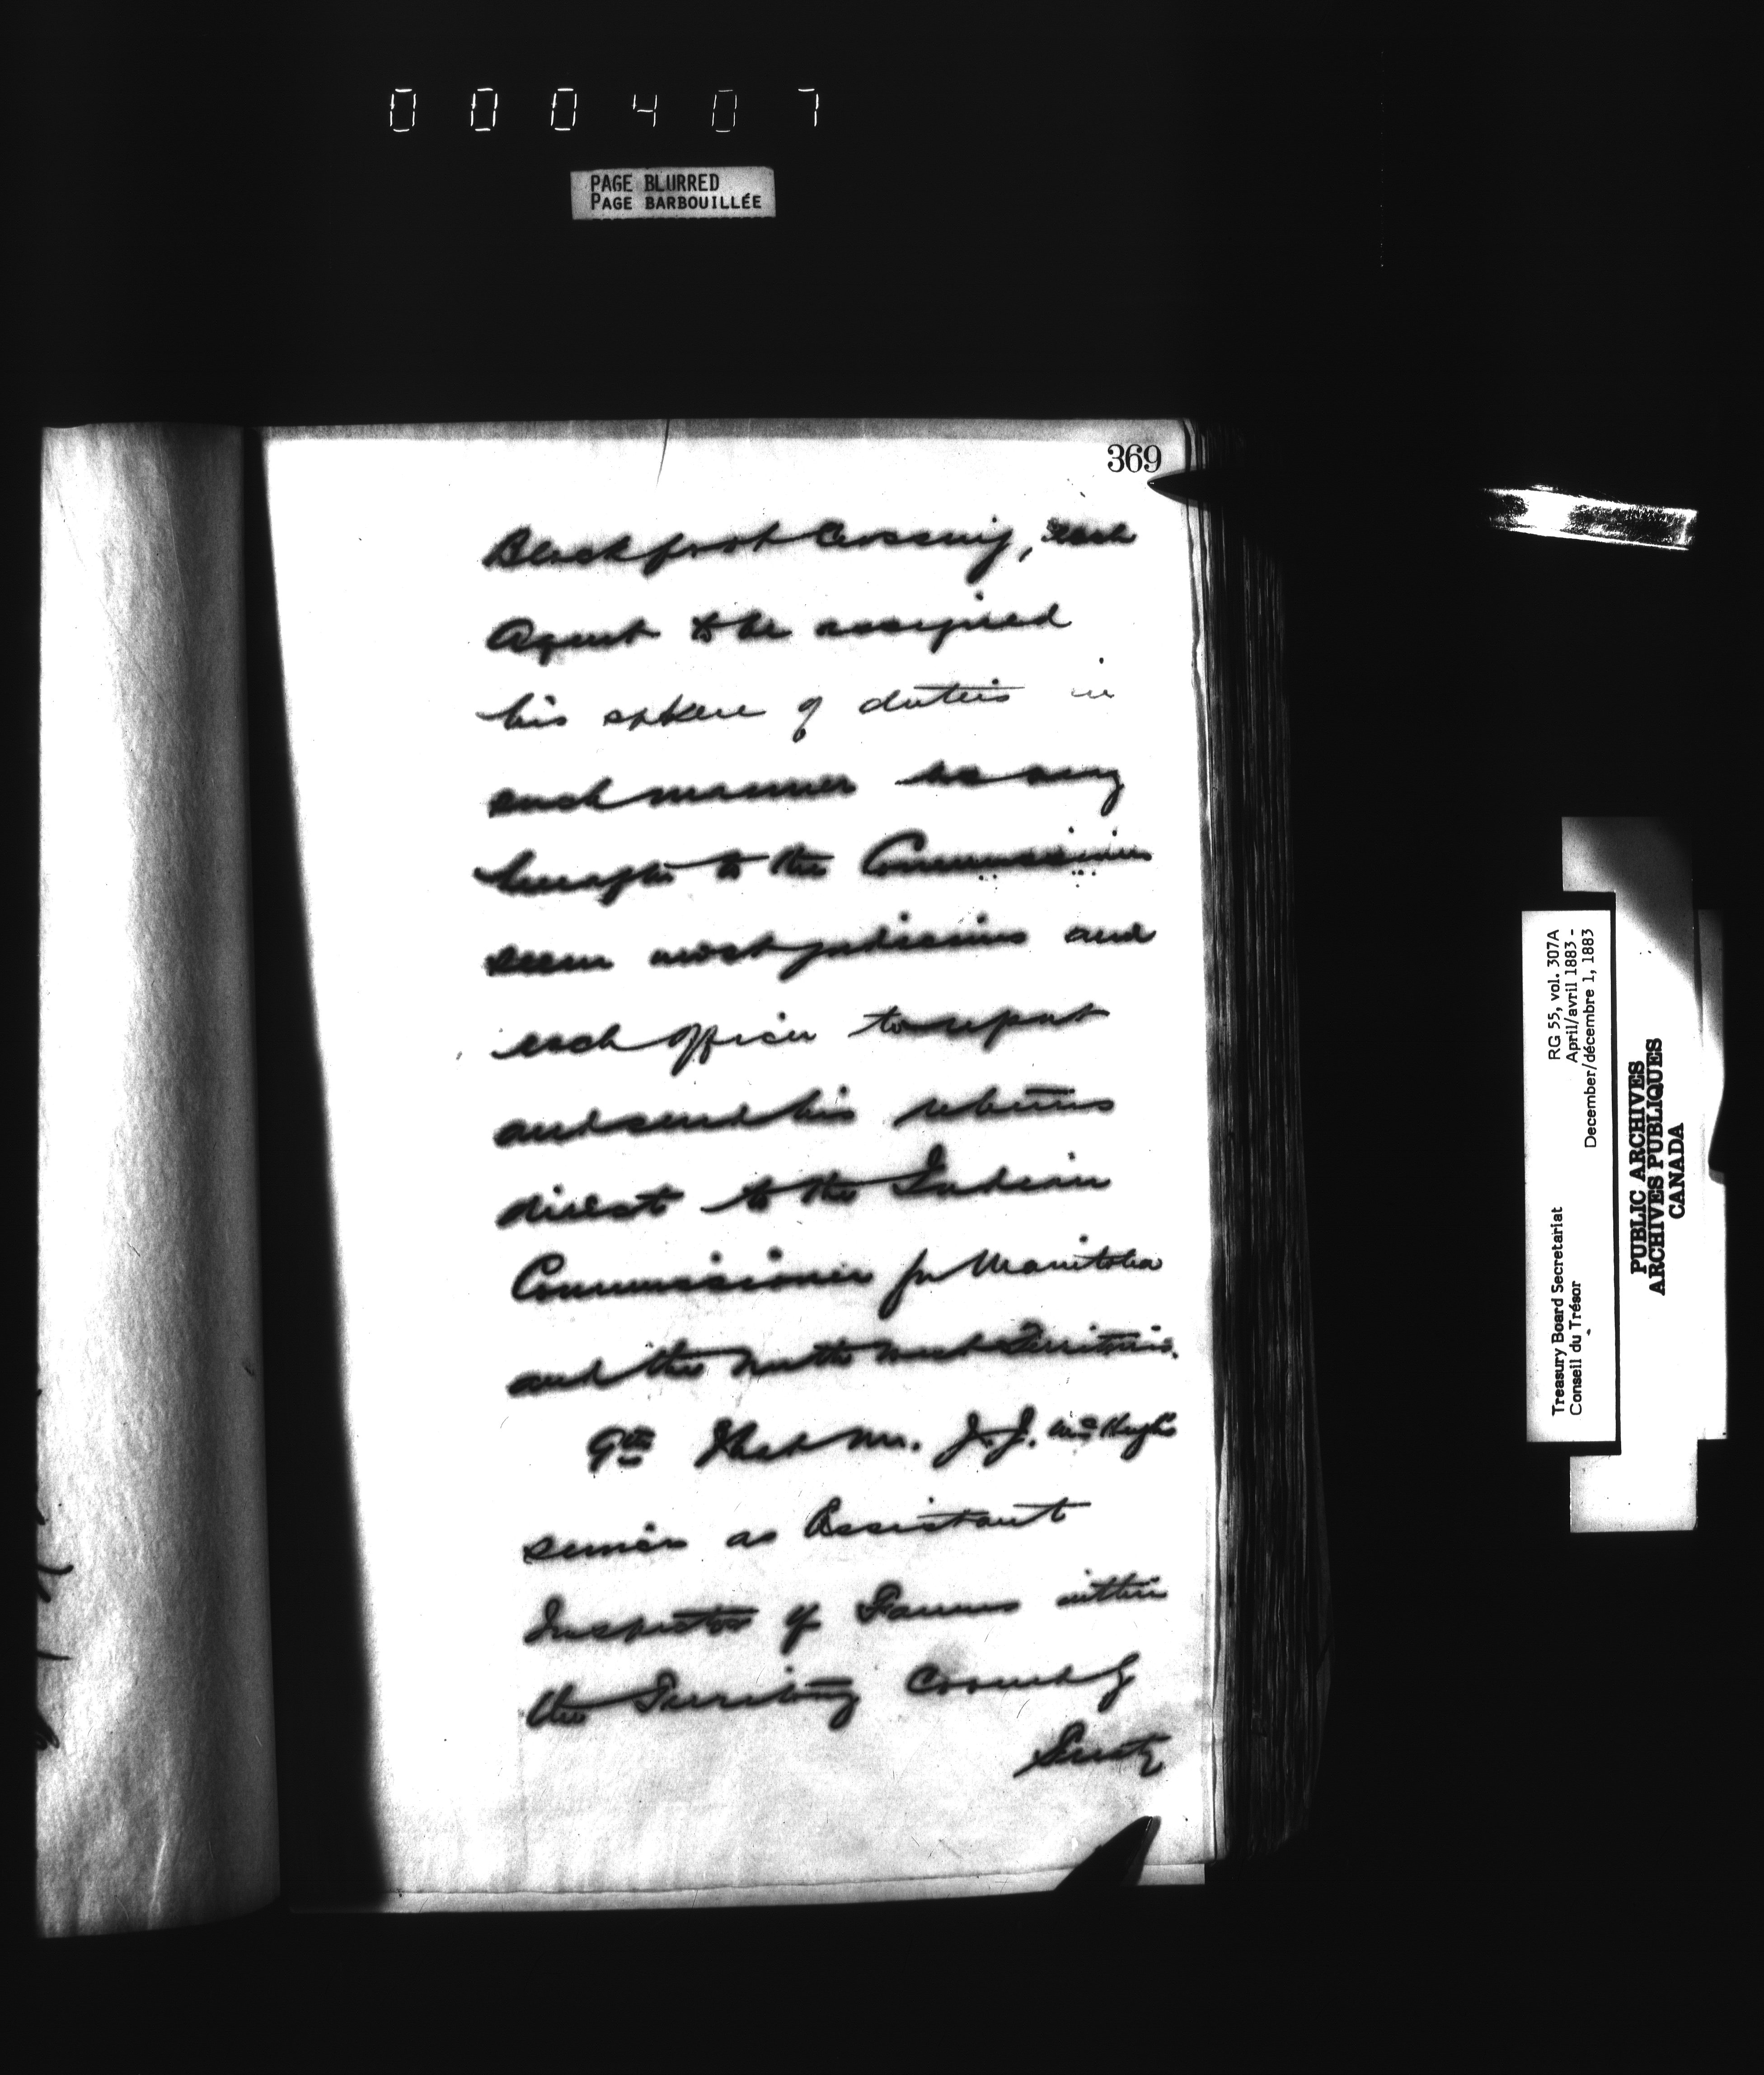 000407
PAGE BLURRED
PAGE BARBOUILLÉE
369
Blackfoot Crossing, each
Agent to be assigned
his sphere of duties in
such manner as may
hereafter to the Commissioner
seem most judicious and
each officer to report
and send his returns
direct to the Indian
Commissioner for Manitoba
and the North West Territories.
9th That Mr. J. J. McHugh
senior as Assistant
Inspector of Farms within
the Territory Covered by
Treaty
Treasury Board Secretariat RG 55, vol. 307A
Conseil du Trésor April/avril 1883 -
December/décembre 1, 1883
PUBLIC ARCHIVES
ARCHIVES PUBLIQUES
CANADA